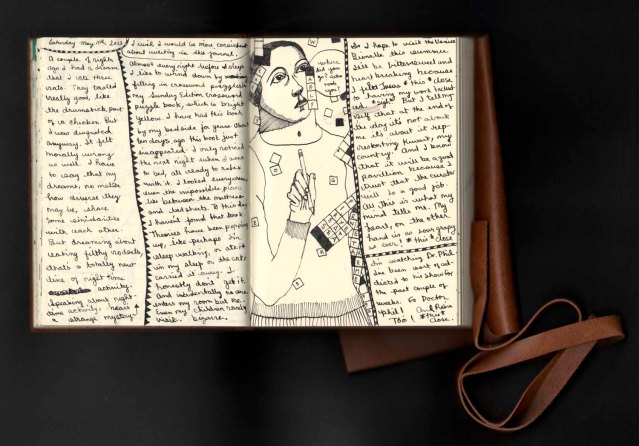 Saturday May 11th, 2013
A couple of nights
ago I had a dream
that I ate three
rats. They tasted
really good, like
the drumstick part
of a chicken. But
I was disgusted
anyway. It felt
morally wrong
as well. I have
to say that my
dreams, no matter
how diverse they
may be, share
some similarities
with each other.
But dreaming about
eating filthy rodents,
that's a totally new
line of night time
activity.
Speaking about night-
time activity, near
a strange mystery.
I wish I would be more consistent
about writing in the journal.
Almost every night before I sleep
I like to wind down by
filling in crossword puzzles in
my Sunday Edition Crossword
puzzle book, which is bright
yellow. I have had this book
by my bedside for years. About
ten days ago this book just
disappeared. I only noticed
the next night when I went
to bed, all ready to relax
with it. I looked everywhere
even the impossible place
between the mattress
and bedsheets. To this day
I haven't found that book.
Theories have been popping
up, like perhaps I'm
sleep walking, or ate it
in my sleep or the cats
carried it away. I
honestly don't get it.
And incidentally no one
enters my room but me.
Even my children rarely
visit. bizarre.
where
did you
go? who
took
you?
So I hope to visit the Venice
Biennale this summer.
It'll be bittersweet and
heartbreaking because
I was *this* close
to having my work
But I tell my
self that at the end of
the day it's not about
me it's about it rep-
resenting Kuwait, my
country. And I know
that it will be a good
pavillion because I
trust that the curator
will do a good job.
All this is what my
mind tells me. My
heart, on the other
hand is as sour grapey
as ever! *this* close
I'm watching Dr. Phil.
I've been sort of ad-
dicted to his show for
the past couple of
weeks. Go Doctor
Phil! And Robin
Too! *this*
close.